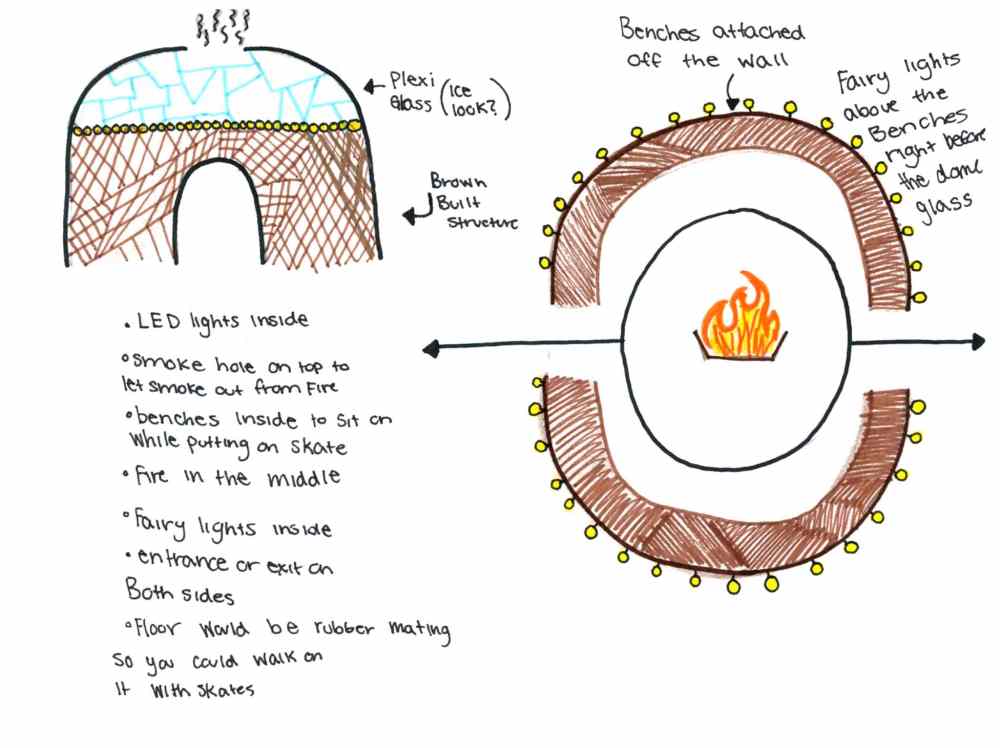 Plexi
Glass (Ice
look?)
Brown
Built
Structure
Benches attached
off the wall
Fairy lights
above the
Benches
right before
the dome
glass
• LED lights inside
• smoke hole on top to
let smoke out from Fire
• benches inside to sit on
while putting on skate
• fire in the middle
• Fairy lights inside
• entrance or exit on
Both sides
• Floor would be rubber mating
So you could walk on
It with skates